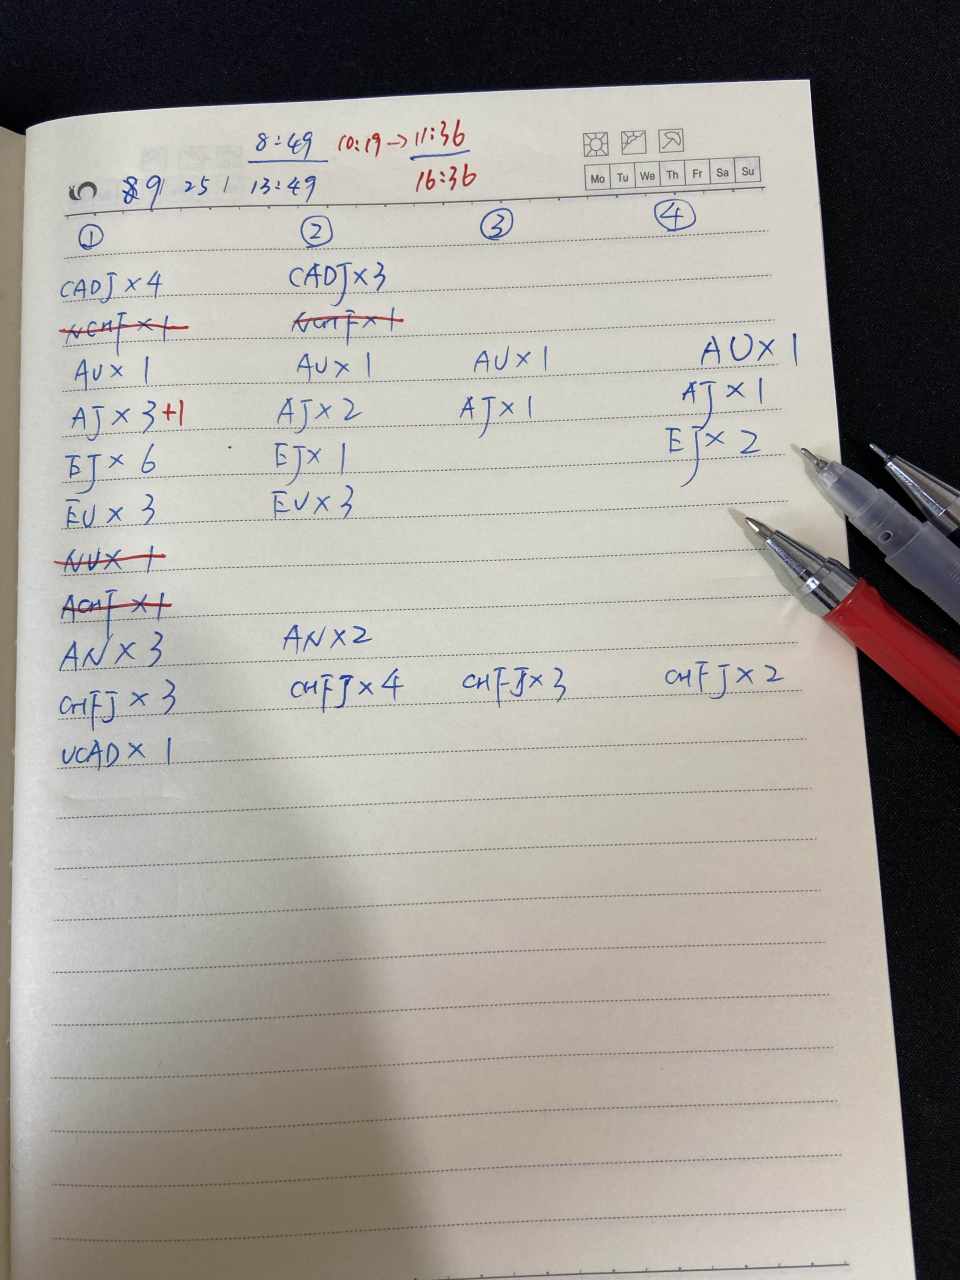 8:49 10:19→11:36
9 25 13:49 16:36
Mo Tu We Th Fr Sa Su
① ② ③ ④
CADJ×4 CADJ×3
NCHF×1 NCHF×1
AU×1 AU×1 AU×1 AU×1
AJ×3+1 AJ×2 AJ×1 AJ×1
EJ×6 EJ×1 EJ×2
EU×3 EU×3
NU×1
ACHF×1
AN×3 AN×2
CHFJ×3 CHFJ×4 CHFJ×3 CHFJ×2
UCAD×1